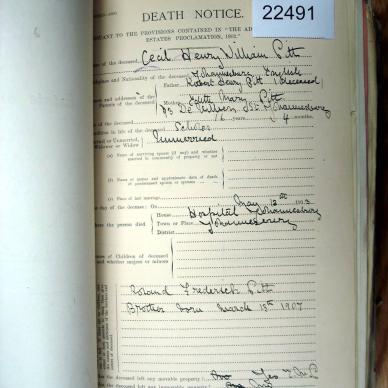 22491
DEATH NOTICE.
PURSUANT TO THE PROVISIONS CONTAINED IN "THE AD
ESTATES PROCLAMATION, 1902."
of the deceased, Cecil Henry William Pitt
Birthplace and Nationality of the deceased Johannesburg English
Names and addresses of the Parents of the deceased
Father Robert Henry Pitt (Deceased
Mother Edith Mary Pitt
93 De Villiers St Johannesburg
of the deceased 16 years 4 months
Condition in life of the deceased Scholar
Married or Unmarried, Widower or Widow Unmarried
(a) Name of surviving spouse (if any) and whether married in community of property or not
(b) Name or names and approximate date of death of predeceased spouse or spouses
(c) Place of last marriage
day of the decease: On May 12th 1913
Where the person died
House Hospital Johannesburg
Town or Place Johannesburg
District
Names of Children of deceased and whether majors or minors
Roland Frederick Pitt
Brother born March 15th 1907
the deceased left any movable property
the deceased left any immovable property